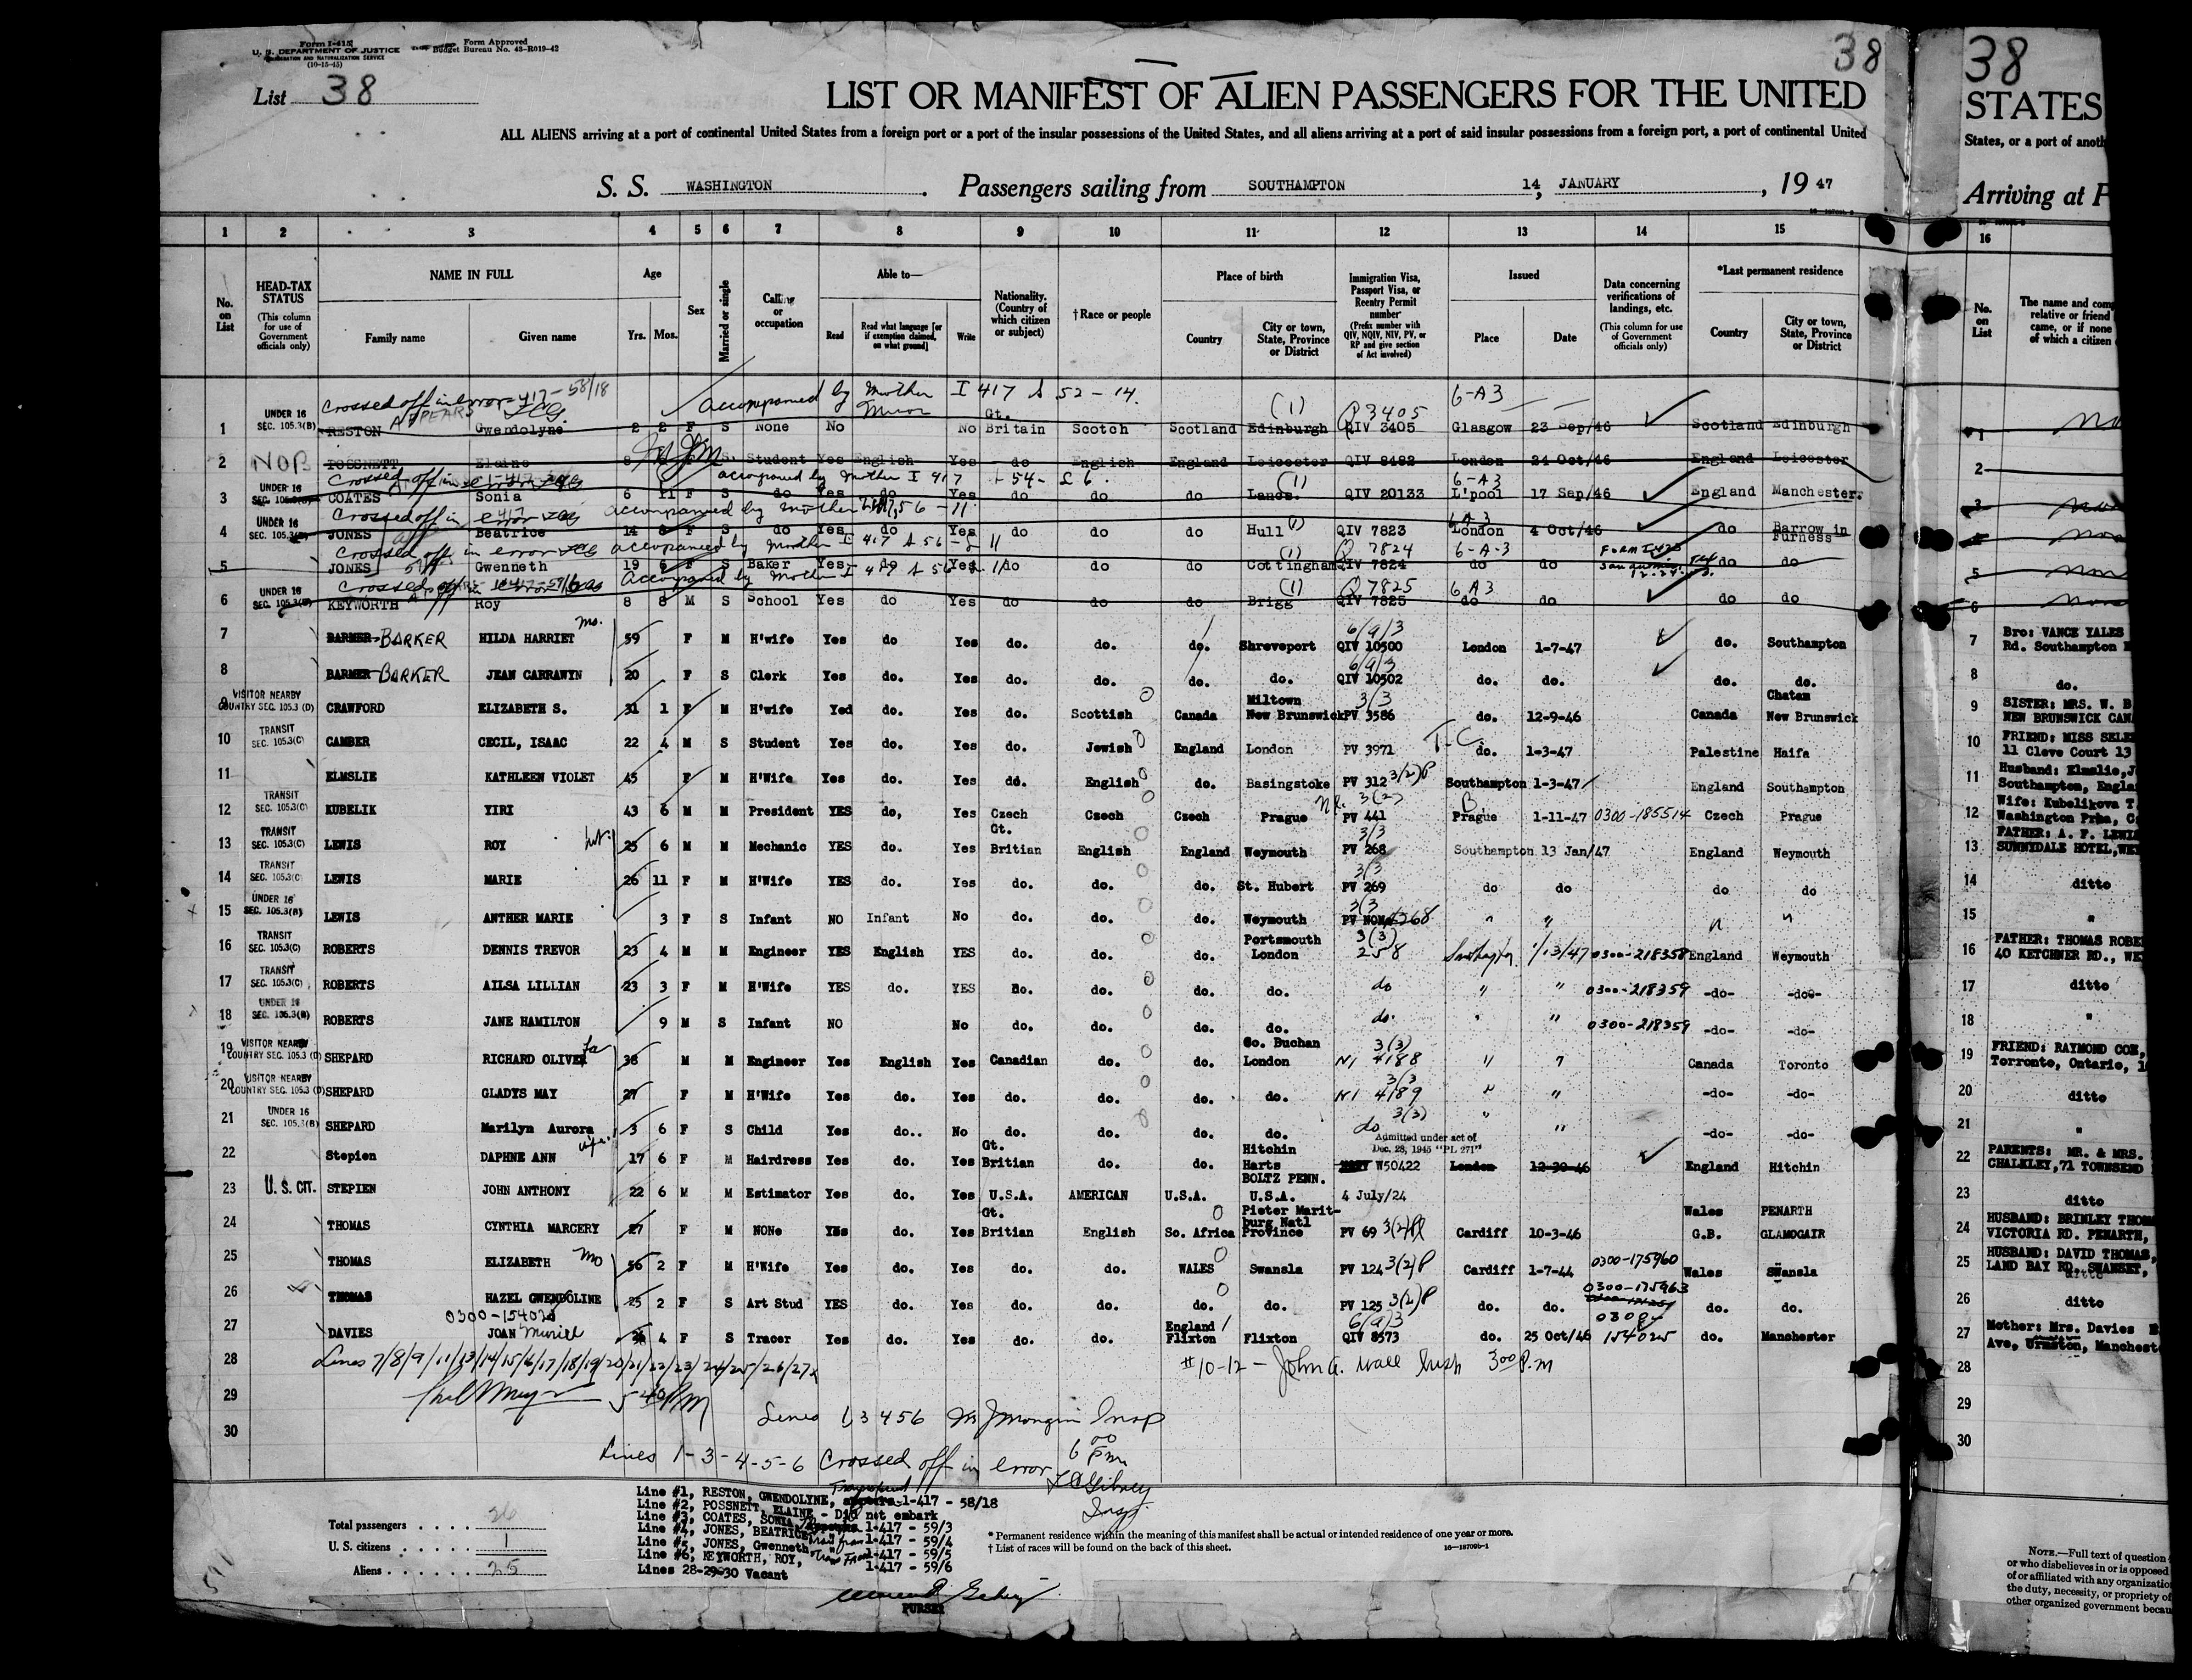 Form I-415
U. S. DEPARTMENT OF JUSTICE
IMMIGRATION AND NATURALIZATION SERVICE
(10-15-45)
Form Approved
Budget Bureau No. 43-R019-42
38
38
List 38
LIST OR MANIFEST OF ALIEN PASSENGERS FOR THE UNITED
STATES
ALL ALIENS arriving at a port of continental United States from a foreign port or a port of the insular possessions of the United States, and all aliens arriving at a port of said insular possessions from a foreign port, a port of continental United
States, or a port of anoth
S. S. WASHINGTON. Passengers sailing from SOUTHAMPTON 14, JANUARY, 19 47
Arriving at P
1 2 3 4 5 6 7 8 9 10 11 12 13 14 15 16
No. on List
HEAD-TAX STATUS
(This column for use of Government officials only)
NAME IN FULL
Family name Given name
Age
Yrs. Mos.
Sex
Married or single
Calling or occupation
Able to—
Read Read what language [or if exemption claimed, on what ground] Write
Nationality. (Country of which citizen or subject)
†Race or people
Place of birth
Country City or town, State, Province or District
Immigration Visa, Passport Visa, or Reentry Permit number
(Prefix number with QIV, NQIV, NIV, PV, or RP and give section of Act involved)
Issued
Place Date
Data concerning verifications of landings, etc.
(This column for use of Government officials only)
*Last permanent residence
Country City or town, State, Province or District
No. on List
The name and com
relative or friend
came, or if none
of which a citizen
Crossed off in error 417-58/18 accompanied by Mother I 417 52-14. 6-A3
APPEARS (1) Q 3405
1 UNDER 16 SEC. 105.3(B) RESTON Gwendolyne 2 2 F S None No No Gt. Britain Scotch Scotland Edinburgh QIV 3405 Glasgow 23 Sep/46 Scotland Edinburgh
2 NOB POSSNETT Elaine 8 S Student Yes English Yes do English England Leicester QIV 8482 London 24 Oct/46 England Leicester
Crossed off in error accompanied by Mother I 417 (1) 6-A3
3 UNDER 16 SEC. 105.3(B) COATES Sonia 6 11 F S do Yes do Yes do do do Lancs. QIV 20133 L'pool 17 Sep/46 England Manchester.
Crossed off in error accompanied by Mother
4 UNDER 16 SEC. 105.3(B) JONES Beatrice 14 8 F S do Yes do Yes do do do Hull (1) QIV 7823 London 4 Oct/46 do Barrow in Furness
Crossed off in error accompanied by Mother I 417 (1) Q 7824 6-A-3
5 JONES Gwenneth 19 6 F S Baker Yes do Yes do do do Cottingham QIV 7824 do do do do
Crossed off in error Accompanied by Mother I 417 (1) Q 7825 6 A3
6 UNDER 16 SEC. 105.3(B) KEYWORTH Roy 8 8 M S School Yes do Yes do do do Brigg QIV 7825 do do do do
7 BARMER BARKER HILDA HARRIET mo. 59 F M H'wife Yes do Yes do. do. do. Shreveport 6/a/3 QIV 10500 London 1-7-47 do. Southampton
Bro: VANCE YALES
Rd. Southampton
8 BARMER BARKER JEAN CARRAWYN 20 F S Clerk Yes do. Yes do. do. do. do. 6/a/3 QIV 10502 do. do. do. do.
do.
9 VISITOR NEARBY COUNTRY SEC. 105.3 (D) CRAWFORD ELIZABETH S. 31 1 F M H'wife Yed do. Yes do. Scottish Canada Miltown New Brunswick 3/3 PV 3586 do. 12-9-46 Canada Chatam New Brunswick
SISTER: MRS. W. B
NEW BRUNSWICK CAN
10 TRANSIT SEC. 105.3(C) CAMBER CECIL, ISAAC 22 4 M S Student Yes do. Yes do. Jewish England London PV 3971 T-C do. 1-3-47 Palestine Haifa
FRIEND: MISS SELE
11 Cleve Court 13
11 ELMSLIE KATHLEEN VIOLET 45 F M H'Wife Yes do. Yes do. English do. Basingstoke PV 312 3(2)P Southampton 1-3-47 England Southampton
Husband: Elmslie,J
Southampton, Engla
12 TRANSIT SEC. 105.3(C) KUBELIK YIRI 43 6 M M President YES do, Yes Czech Czech Czech Prague 3(2) PV 441 Prague 1-11-47 0300-185514 Czech Prague
Wife: Kubelikova T
Washington Prha, C
13 TRANSIT SEC. 105.3(C) LEWIS ROY 25 6 M M Mechanic YES do. Yes Gt. Britian English England Weymouth 3/3 PV 268 Southampton 13 Jan/47 England Weymouth
FATHER: A. F. LEWIS
SUNNYDALE HOTEL,WE
14 TRANSIT SEC. 105.3(C) LEWIS MARIE 26 11 F M H'Wife YES do. Yes do. do. do. St. Hubert 3/3 PV 269 do do do do
ditto
15 UNDER 16 SEC. 105.3(B) LEWIS ANTHER MARIE 3 F S Infant NO Infant No do. do. do. Weymouth 3/3 PV NONE 268 " " " "
"
16 TRANSIT SEC. 105.3(C) ROBERTS DENNIS TREVOR 23 4 M M Engineer YES English YES do. do. do. Portsmouth London 3(3) 258 Southampton 1/13/47 0300-218358 England Weymouth
FATHER: THOMAS ROBE
40 KETCHNER RD., WE
17 TRANSIT SEC. 105.3(C) ROBERTS AILSA LILLIAN 23 3 F M H'Wife YES do. YES Do. do. do. do. do " " 0300-218359 -do- -do-
ditto
18 UNDER 16 SEC. 105.3(B) ROBERTS JANE HAMILTON 9 M S Infant NO No do. do. do. do. do. " " 0300-218359 -do- -do-
"
19 VISITOR NEARBY COUNTRY SEC. 105.3 (D) SHEPARD RICHARD OLIVER fa 38 M M Engineer Yes English Yes Canadian do. do. So. Buchan London 3(3) NI 4188 " 7 Canada Toronto
FRIEND: RAYMOND COX,
Torronto, Ontario, 1
20 VISITOR NEARBY COUNTRY SEC. 105.3 (D) SHEPARD GLADYS MAY 27 F M H'Wife Yes do. Yes do. do. do. do. 3/3 NI 4189 " " -do- -do-
ditto
21 UNDER 16 SEC. 105.3(B) SHEPARD Marilyn Aurora 3 6 F S Child Yes do.. No do. do. do. do. 3(3) do " " -do- -do-
"
22 Stepien DAPHNE ANN wife. 17 6 F M Hairdress Yes do. Yes Gt. Britian do. do. Hitchin Harts Admitted under act of Dec. 28, 1945 "PL 271" W50422 London 12-30-46 England Hitchin
PARENTS: MR. & MRS.
CHALKLEY,71 TOWNSEND
23 U. S. CIT. STEPIEN JOHN ANTHONY 22 6 M M Estimator Yes do. Yes U.S.A. AMERICAN U.S.A. BOLTZ PENN. U.S.A. 4 July/24
ditto
24 THOMAS CYNTHIA MARGERY 27 F M NONe Yes do. Yes Gt. Britian English So. Africa Pieter Marit-burg Natl Province PV 69 3(2) Cardiff 10-3-46 Wales G.B. PENARTH GLAMOGAIR
HUSBAND: BRINLEY THOM
VICTORIA RD. PENARTH,
25 THOMAS ELIZABETH Mo 56 2 F M H'Wife Yes do. Yes do. do. WALES Swansla PV 124 3(2)P Cardiff 1-7-44 0300-175960 Wales Swansla
HUSBAND: DAVID THOMAS,
LAND BAY RD. SWANSET,
ditto
26 THOMAS HAZEL GWENDOLINE 25 2 F S Art Stud YES do. Yes do. do. do. do. PV 125 3(2)P do. do. 0300-175963 do. do.
ditto
0300-154025
27 DAVIES JOAN Muriel 26 4 F S Tracer Yes do. Yes do. do. England Flixton Flixton 6(a)3 QIV 8573 do. 25 Oct/46 154025 do. Manchester
Mother: Mrs. Davies
Ave, Urmston, Manchest
28 Lines 7/8/9/11/13/14/15/16/17/18/19/20/21/22/23/24/25/26/27x #10-12 - John A. Wall Insp 3 00 P.m
29 5 40 PM
Lines 1,3 4 5 6 Insp
30
Lines 1-3-4-5-6 Crossed off in error 6 00 pm
Insp
Line #1, RESTON, GWENDOLYNE, 1-417 - 58/18
Line #2, POSSNETT, ELAINE - Did not embark
Line #3, COATES, SONIA, 1-417 - 59/3
Line #4, JONES, BEATRICE, 1-417 - 59/4
Line #5, JONES, Gwenneth 1-417 - 59/5
Line #6, KEYWORTH, ROY, 1-417 - 59/6
Lines 28-29-30 Vacant
PURSER
Total passengers . . . . 26
U. S. citizens . . . . . . 1
Aliens . . . . . . . 25
* Permanent residence within the meaning of this manifest shall be actual or intended residence of one year or more.
† List of races will be found on the back of this sheet.
16—18709b-1
NOTE.—Full text of question
or who disbelieves in or is opposed
of or affiliated with any organizatio
the duty, necessity, or propriety of
other organized government becau